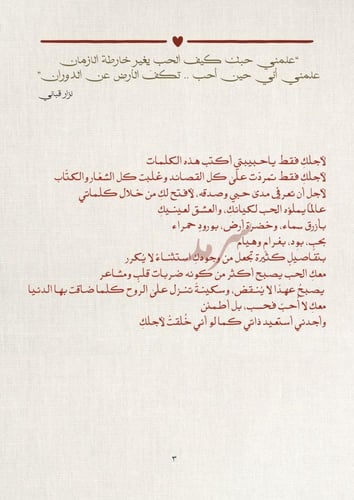 "علمني حبك كيف الحب يغير خارطة الازمان
علمني أني حين أحب .. تكف الأرض عن الدوران"
نزار قباني
لأجلك فقط ياحبيبتي أكتب هذه الكلمات
لأجلك فقط تمردت على كل القصائد وغلبت كل الشعار والكتّاب
لأجل أن تعرفي مدى حبي وصدقه، لأفتح لك من خلال كلماتي
عالماً يملؤه الحب لكيانك، والعشق لعينيك
بأزرق سماء، وخضرة أرض، بورود حمراء
بحب، بود، بغرام وهيام
بتفاصيل كثيرة تجعل من وجودك استثناءً لا يُكرر
معك الحب يصبح أكثر من كونه ضربات قلب ومشاعر
يصبحُ عهدًا لا يُنقض، وسكينةً تتنزل على الروح كلما ضاقت بها الدنيا
معك لا أحبّ فحسب، بل أطمئن
وأجدني أستعيد ذاتي كما لو أني خُلقتُ لأجلك
سرمد
٣